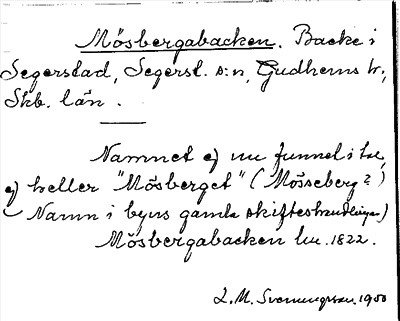 Mösbergabacken. Backe i
Segerstad, Segerst. s:n, Gudhems hr,
Skb. län.
Namnet ej nu funnet i br.,
ej heller "Mösberget" (Mösseberg?)
Namn i byns gamla skifteshandlingar)
Mösbergabacken 1822.
L.M. Svenungsson. 1930